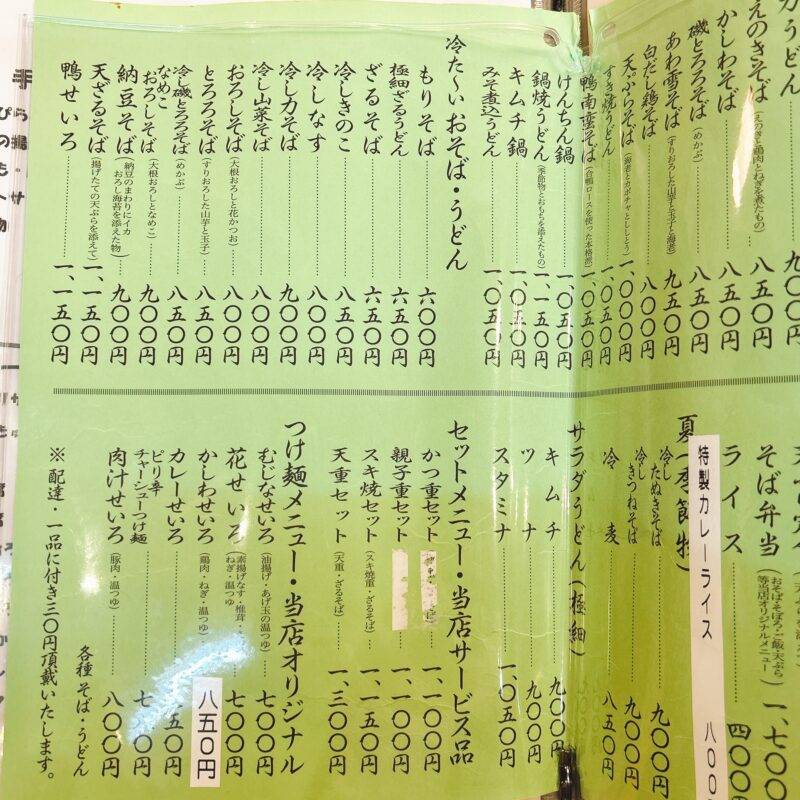 えのきそば(えのきと鶏肉とねぎを煮たもの)八五〇円
かしわそば 八五〇円
磯とろろそば(めかぶ)八五〇円
あわ雪そば(すりおろした山芋と玉子と海老)九五〇円
白だし鶏そば 八〇〇円
天ぷらそば(海老とカボチャとししとう)一、〇〇〇円
すき焼うどん 一、〇五〇円
鴨南蛮そば(合鴨ロースを使った本格派)一、〇五〇円
けんちん鍋 一、〇五〇円
鍋焼うどん(季節物とおもちを添えたもの)一、一五〇円
キムチ鍋 一、〇五〇円
みそ煮込うどん 一、〇五〇円
冷た〜いおそば・うどん
もりそば 六〇〇円
極細ざるうどん 六五〇円
ざるそば 六五〇円
冷しきのこ 八五〇円
冷しなす 八〇〇円
冷し力そば 九〇〇円
冷し山菜そば 八〇〇円
おろしそば(大根おろしと花かつお)八〇〇円
とろろそば(すりおろした山芋と玉子)八五〇円
冷し磯とろろそば(めかぶ)八五〇円
なめこおろしそば(大根おろしとなめこ)九〇〇円
納豆そば(納豆のまわりにイカおろし海苔を添えた物)九〇〇円
天ざるそば(揚げたての天ぷらを添えて)一、一五〇円
鴨せいろ 一、一五〇円
そば弁当(おそば・そぼろ・ご飯・天ぷら等当店オリジナルメニュー)一、七〇〇
ライス 四〇〇
特製カレーライス 八〇〇
夏季節物
冷したぬきそば 九〇〇円
冷しきつねそば 九〇〇円
冷麦 八五〇円
サラダうどん(極細)
キムチ 九〇〇円
ツナ 九〇〇円
スタミナ 一、〇五〇円
セットメニュー・当店サービス品
かつ重セット 一、一〇〇円
親子重セット 一、一〇〇円
スキ焼セット(スキ焼重・ざるそば)一、一五〇円
天重セット(天重・ざるそば)一、三〇〇円
つけ麺メニュー・当店オリジナル
むじなせいろ(油揚げ・あげ玉の温つゆ)七〇〇円
花せいろ(素揚げなす・椎茸・ねぎ・温つゆ)七〇〇円
かしわせいろ(鶏肉・ねぎ・温つゆ)八五〇円
カレーせいろ 五〇円
ピリ辛チャーシューつけ麺
肉汁せいろ(豚肉・温つゆ)八〇〇円
各種そば・うどん
※配達・一品に付き三〇円頂戴いたします。